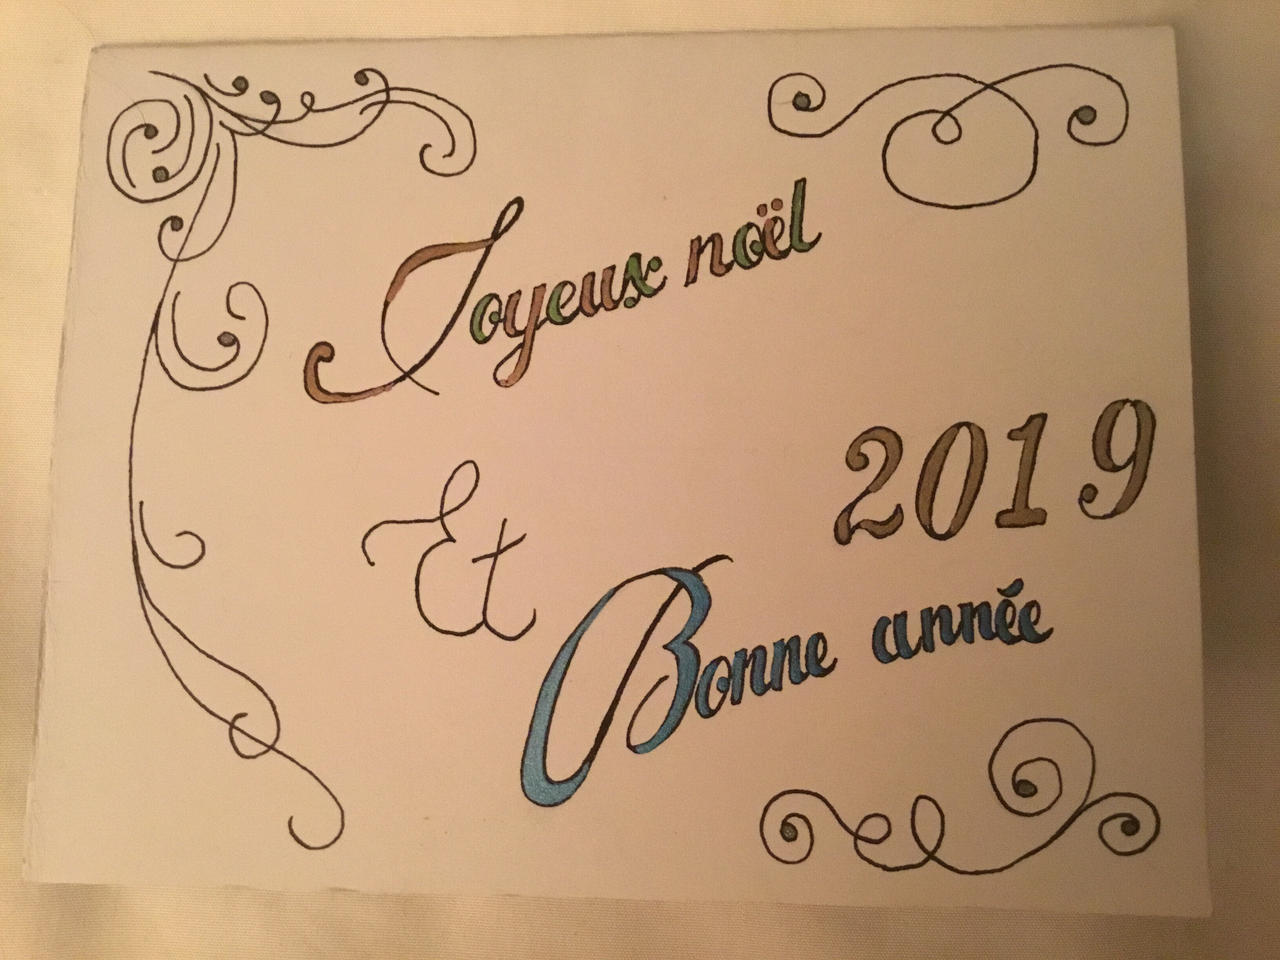 Joyeux noël
Et
2019
Bonne année